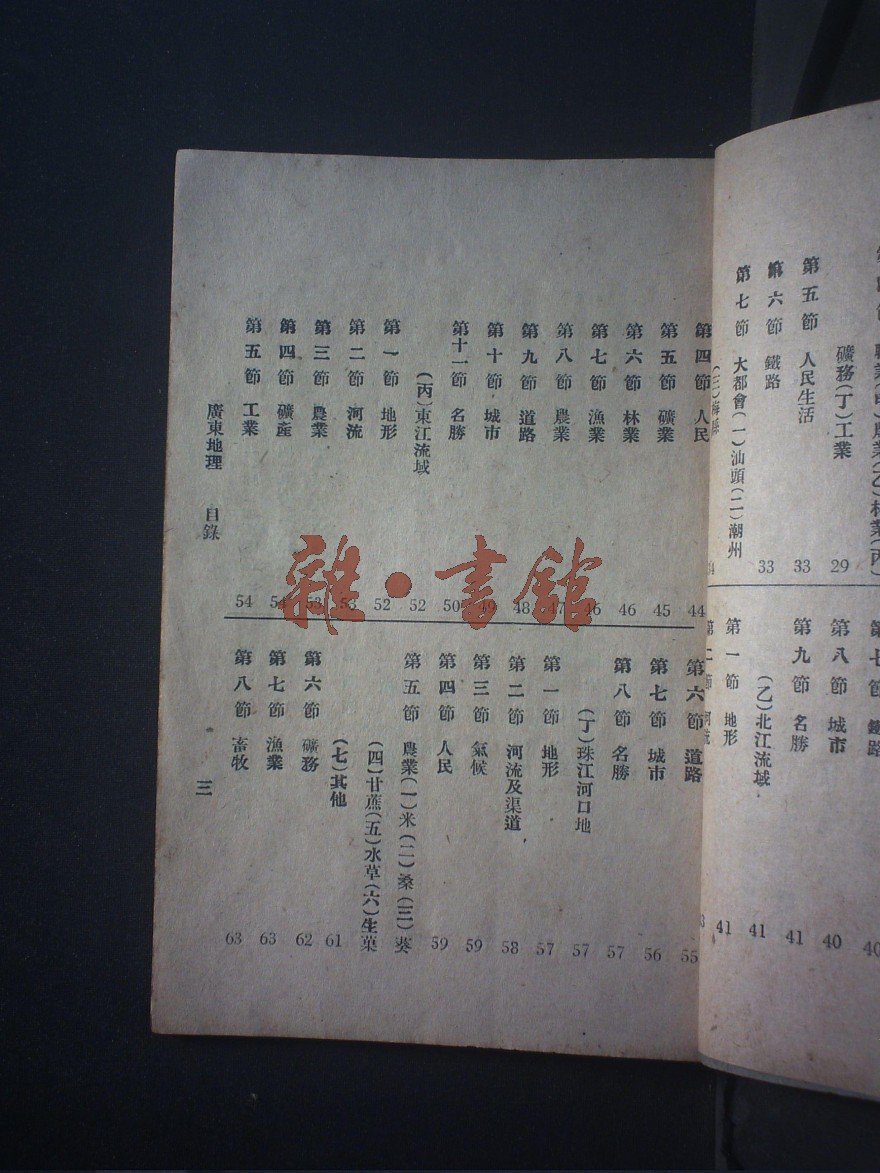 第五節 人民生活 33
礦務(丁)工業 29
第六節 鐵路 33
第七節 大都會(一)汕頭(二)潮州
第七節 鐵路 40
第八節 城市 40
第九節 名勝 41
(乙)北江流域 41
第一節 地形 41
第二節 河流
第四節 人民 44
第五節 礦業 45
第六節 林業 46
第七節 漁業 46
第八節 農業 47
第九節 道路 48
第十節 城市 49
第十一節 名勝 50
(丙)東江流域 52
第一節 地形 52
第二節 河流 53
第三節 農業 53
第四節 礦產 54
第五節 工業 54
第六節 道路 55
第七節 城市 56
第八節 名勝 57
(丁)珠江河口地 57
第一節 地形 57
第二節 河流及渠道 58
第三節 氣候 59
第四節 人民 59
第五節 農業(一)米(二)桑(三)葵
(四)甘蔗(五)水草(六)生菓
(七)其他 61
第六節 礦務 62
第七節 漁業 63
第八節 畜牧 63
廣東地理 目錄 三
雜·書館